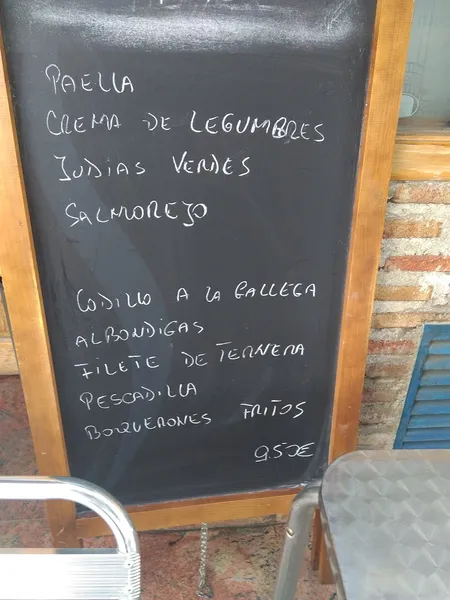 PAELLA
CREMA DE LEGUMBRES
JUDIAS VERDES
SALMOREJO
CODILLO A LA GALLEGA
ALBONDIGAS
FILETE DE TERNERA
PESCADILLA
BOQUERONES FRITOS
9.50€